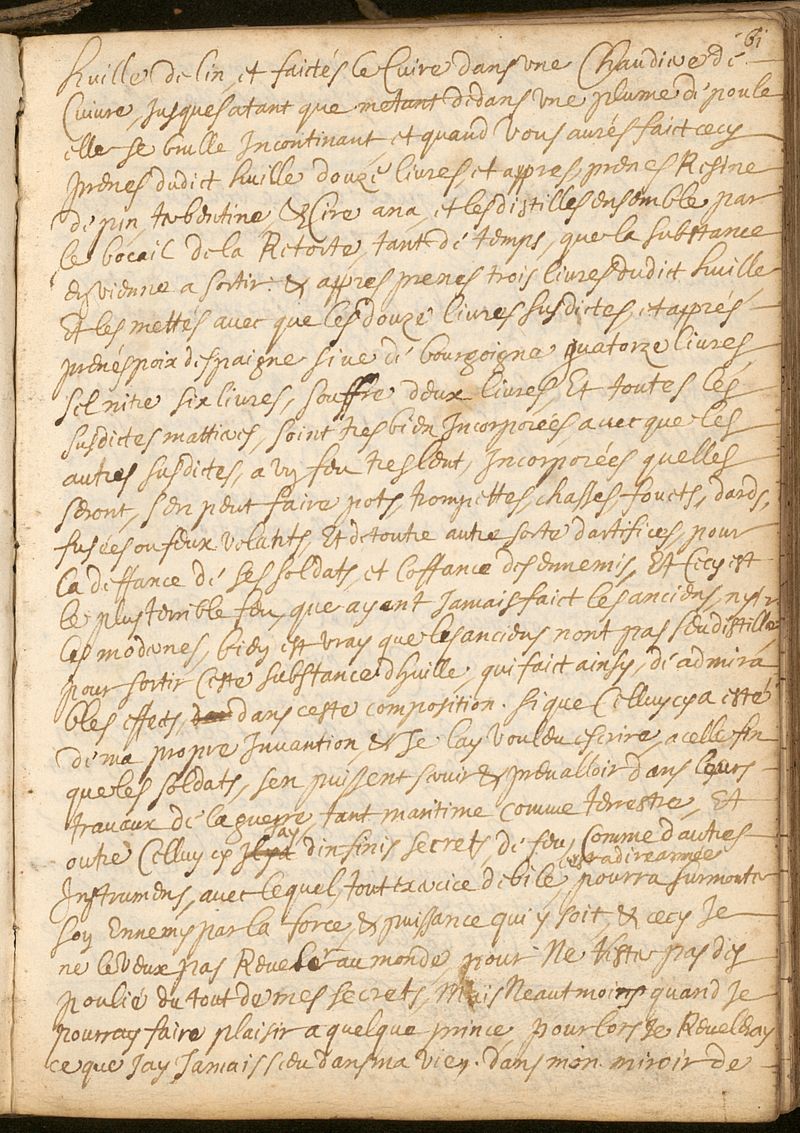 61
huille de lin, et faictés le Cuire dans une Chaudiere de
Cuivre, Jusques a tant que metant dedans une plume de poule
elle se brulle Incontinant, et quand vous aurés faict cecy
prenes dudict huille douze livres, et appres, prenes Resine
de pin, terbentine & Cire ana, et les distilles ensemble par
le bocail de la Retorte, tant de temps, que la substance
en vienne a sortir. & appres prenes trois livres dudict huille
Et les mettés avec que les douze livres susdictes, et apprés
prenés poix despaigne sive de bourgoigne quatorze livres,
sel nitre six livres, souffre deux livres, Et toutes les
susdictes mattiaes, soint tres bien Incorporées, avec que les
autres susdictes, a un feu tres lent, Incorporées quelles
seront, sen peut faire pots, trompettes, chasses, fouets, dards,
fusées ou feux volants, Et de toutte autre sorte dartifices, pour
la deffance de ses soldats, et loffance des ennemis, Et Cecy est
le plus terrible feu, que ayent Jamais faict les anciens, ny
les modernes, bien est vray que les anciens nont pas seu distiller
pour sortir Ceste substance dhuille, qui faict ainsy, de admira
bles effects, dans ceste composition. si que Celluy cy a esté
de ma propre Invantion, & Je lay voulcu escrire, a celle fin
que les soldats, sen puissent servir & prevalloir dans leurs
travaux de la guerre, tant maritime comme terrestre, Et
outre Celluy cy Jay dinfinis secrets, de feu, Comme dautres
Instrumens, avec lequel, tout exercice debile pourra surmonter
son Ennemy par la force, & puissance qui y soit, & cecy Je
ne le veux pas Reveler au monde, pour Ne Rester pas des
poulié du tout de mes secrets, Mais Neautmoins quand Je
pourray faire plaisir a quelque prince, pour lors Je Revelleray
ce que Jay Jamais sceu dans ma vie. dans mon miroir de